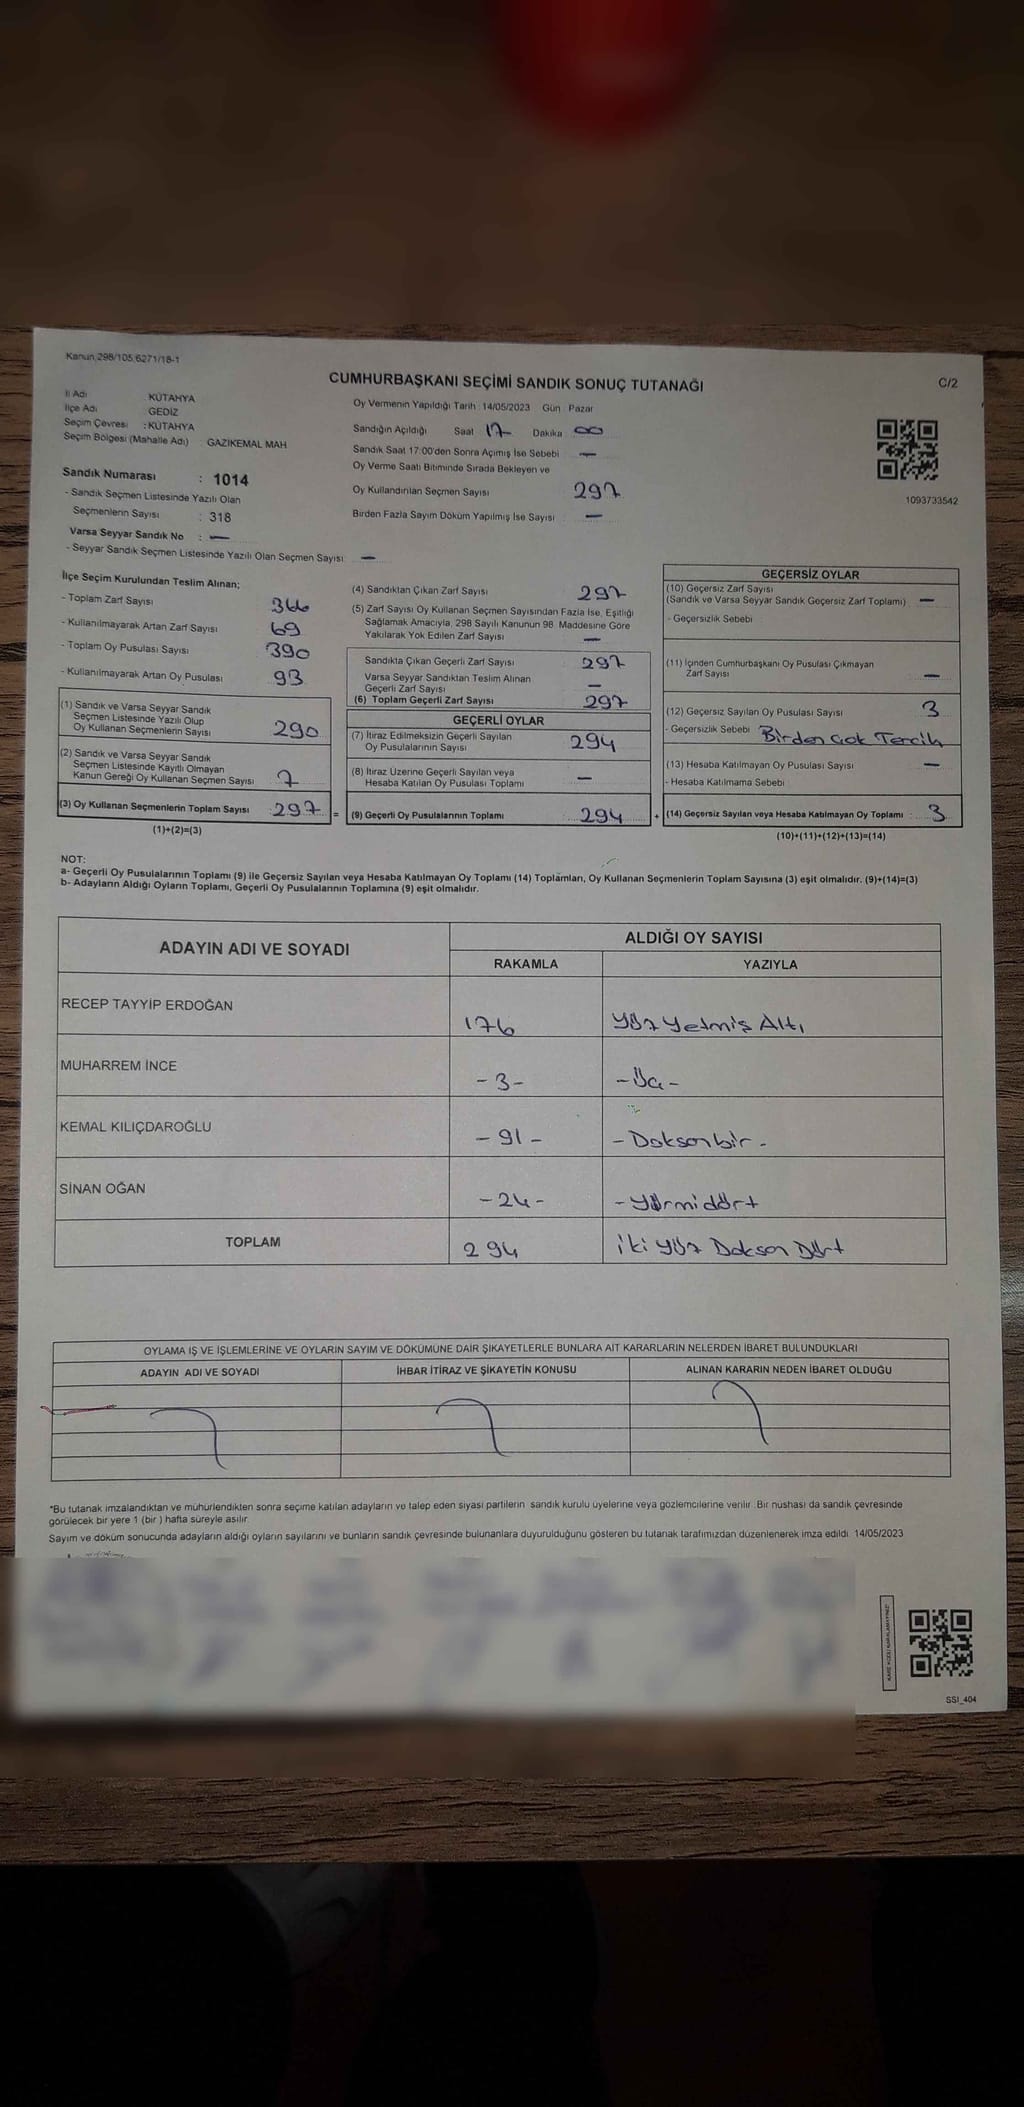 Kanun 298/105,6271/18-1
CUMHURBAŞKANI SEÇİMİ SANDIK SONUÇ TUTANAĞI
C/2
İl Adı : KÜTAHYA
İlçe Adı : GEDİZ
Seçim Çevresi : KÜTAHYA
Seçim Bölgesi (Mahalle Adı) : GAZİKEMAL MAH
Sandık Numarası : 1014
- Sandık Seçmen Listesinde Yazılı Olan
Seçmenlerin Sayısı : 318
Varsa Seyyar Sandık No : —
- Seyyar Sandık Seçmen Listesinde Yazılı Olan Seçmen Sayısı : —
Oy Vermenin Yapıldığı Tarih : 14/05/2023 Gün : Pazar
Sandığın Açıldığı Saat 17 Dakika 00
Sandık Saat 17:00'den Sonra Açımış İse Sebebi —
Oy Verme Saati Bitiminde Sırada Bekleyen ve
Oy Kullandırılan Seçmen Sayısı 297
Birden Fazla Sayım Döküm Yapılmış İse Sayısı —
1093733542
İlçe Seçim Kurulundan Teslim Alınan;
- Toplam Zarf Sayısı 366
- Kullanılmayarak Artan Zarf Sayısı 69
- Toplam Oy Pusulası Sayısı 390
- Kullanılmayarak Artan Oy Pusulası 93
(1) Sandık ve Varsa Seyyar Sandık
Seçmen Listesinde Yazılı Olup
Oy Kullanan Seçmenlerin Sayısı 290
(2) Sandık ve Varsa Seyyar Sandık
Seçmen Listesinde Kayıtlı Olmayan
Kanun Gereği Oy Kullanan Seçmen Sayısı 7
(3) Oy Kullanan Seçmenlerin Toplam Sayısı 297 =
(1)+(2)=(3)
(4) Sandıktan Çıkan Zarf Sayısı 297
(5) Zarf Sayısı Oy Kullanan Seçmen Sayısından Fazla İse, Eşitliği
Sağlamak Amacıyla, 298 Sayılı Kanunun 98. Maddesine Göre
Yakılarak Yok Edilen Zarf Sayısı —
Sandıkta Çıkan Geçerli Zarf Sayısı 297
Varsa Seyyar Sandıktan Teslim Alınan
Geçerli Zarf Sayısı —
(6) Toplam Geçerli Zarf Sayısı 297
GEÇERLİ OYLAR
(7) İtiraz Edilmeksizin Geçerli Sayılan
Oy Pusulalarının Sayısı 294
(8) İtiraz Üzerine Geçerli Sayılan veya
Hesaba Katılan Oy Pusulası Toplamı —
(9) Geçerli Oy Pusulalarının Toplamı 294 +
GEÇERSİZ OYLAR
(10) Geçersiz Zarf Sayısı
(Sandık ve Varsa Seyyar Sandık Geçersiz Zarf Toplamı) —
- Geçersizlik Sebebi
(11) İçinden Cumhurbaşkanı Oy Pusulası Çıkmayan
Zarf Sayısı —
(12) Geçersiz Sayılan Oy Pusulası Sayısı 3
- Geçersizlik Sebebi Birden Çok Tercih
(13) Hesaba Katılmayan Oy Pusulası Sayısı —
- Hesaba Katılmama Sebebi
(14) Geçersiz Sayılan veya Hesaba Katılmayan Oy Toplamı : 3
(10)+(11)+(12)+(13)=(14)
NOT:
a- Geçerli Oy Pusulalarının Toplamı (9) ile Geçersiz Sayılan veya Hesaba Katılmayan Oy Toplamı (14) Toplamları, Oy Kullanan Seçmenlerin Toplam Sayısına (3) eşit olmalıdır. (9)+(14)=(3)
b- Adayların Aldığı Oyların Toplamı, Geçerli Oy Pusulalarının Toplamına (9) eşit olmalıdır.
ADAYIN ADI VE SOYADI
ALDIĞI OY SAYISI
RAKAMLA YAZIYLA
RECEP TAYYİP ERDOĞAN 176 Yüz Yetmiş Altı
MUHARREM İNCE -3- -Üç-
KEMAL KILIÇDAROĞLU -91- -Doksanbir-
SİNAN OĞAN -24- -Yirmidört
TOPLAM 294 İki Yüz Doksan Dört
OYLAMA İŞ VE İŞLEMLERİNE VE OYLARIN SAYIM VE DÖKÜMÜNE DAİR ŞİKAYETLERLE BUNLARA AİT KARARLARIN NELERDEN İBARET BULUNDUKLARI
ADAYIN ADI VE SOYADI İHBAR İTİRAZ VE ŞİKAYETİN KONUSU ALINAN KARARIN NEDEN İBARET OLDUĞU
*Bu tutanak imzalandıktan ve mühürlendikten sonra seçime katılan adayların ve talep eden siyasi partilerin sandık kurulu üyelerine veya gözlemcilerine verilir. Bir nüshası da sandık çevresinde
görülecek bir yere 1 (bir) hafta süreyle asılır.
Sayım ve döküm sonucunda adayların aldığı oyların sayılarını ve bunların sandık çevresinde bulunanlara duyurulduğunu gösteren bu tutanak tarafımızdan düzenlenerek imza edildi. 14/05/2023
KARE KODU KARALAMAYINIZ!
SSI_404